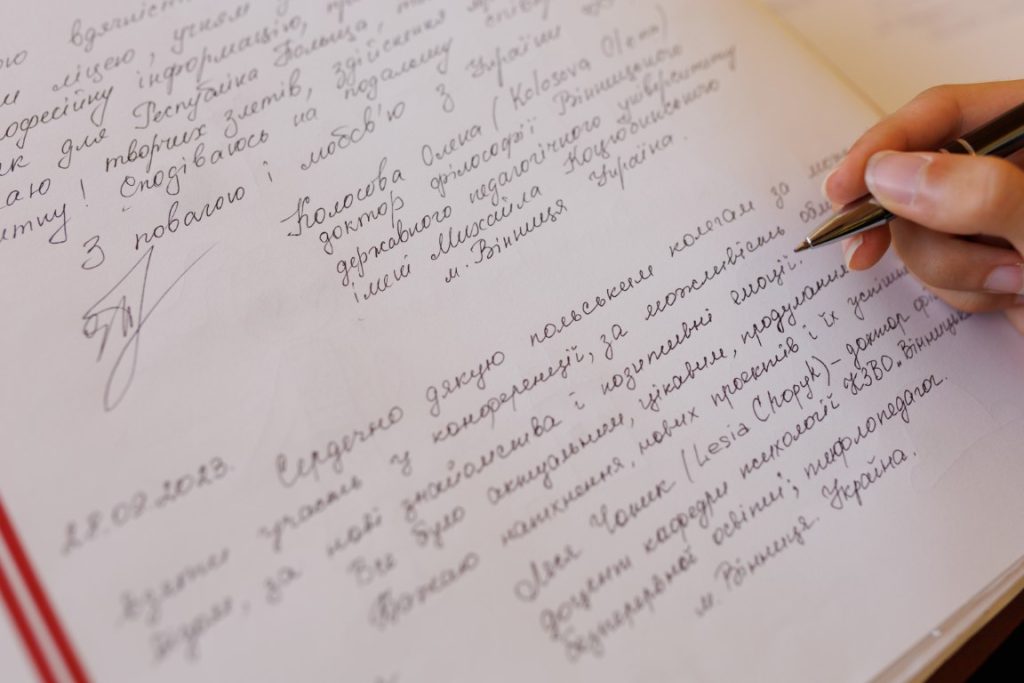 вдячніст
м ліцею, учням
рофесійну інформацію,
к для Республіка Польща,
аю творчих злетів, здійснення
итку! Сподіваюсь на подальшу спів
З повагою і любов'ю з України
Колосова Олена (Kolosova Olena)
доктор філософії Вінницького
державного педагогічного університету
імені Михайла Коцюбинського
м. Вінниця Україна.
28.09.2023. Сердечно дякую польським колегам за мож
взяти участь у конференції, за можливість обм
за нові знайомства і позитивні емоції.
Все було актуальним, цікавим, продуманим
Бажаю натхнення, нових проектів і їх успішн
Леся Чопик (Lesia Chopyk) – доктор філ
доцент кафедри психології КЗВО "Вінницьк
безперервної освіти"; тифлопедагог.
м. Вінниця. Україна.